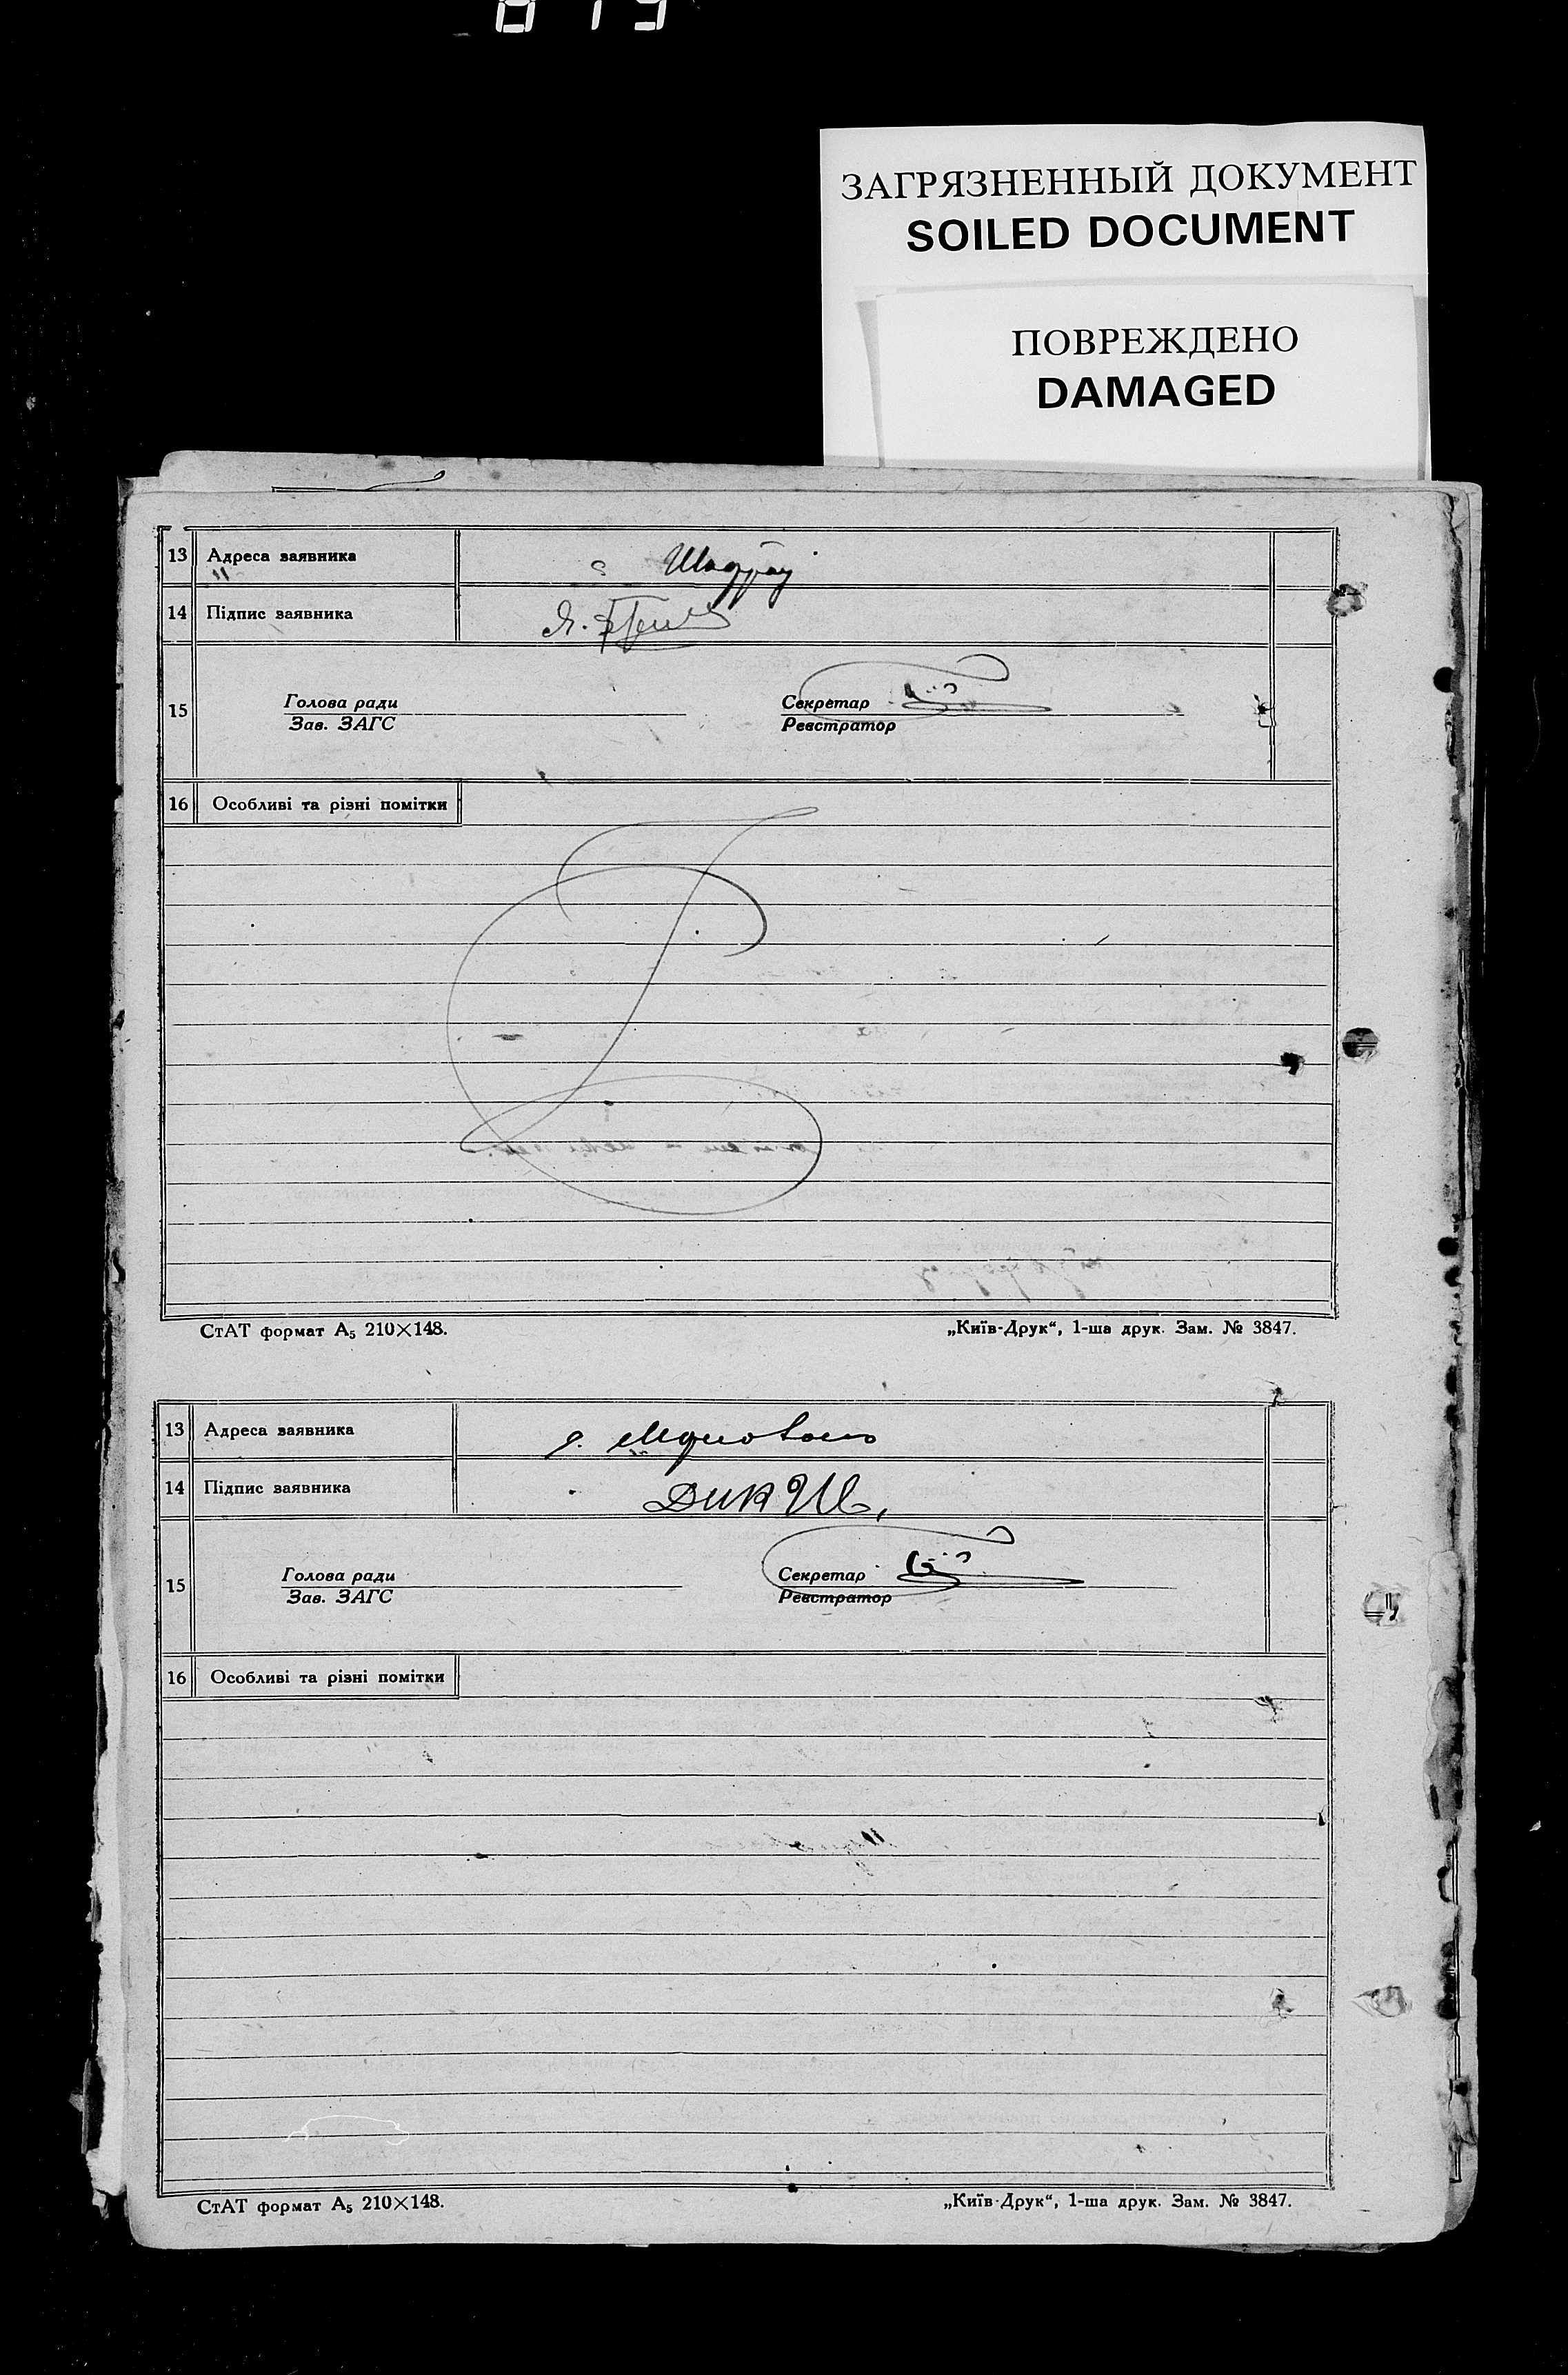 ЗАГРЯЗНЕННЫЙ ДОКУМЕНТ
SOILED DOCUMENT
ПОВРЕЖДЕНО
DAMAGED
13 Адреса заявника с
14 Підпис заявника Я.
15 Голова ради Секретар
Зав. ЗАГС Реєстратор
16 Особливі та різні помітки
СтАТ формат А₅ 210×148. „Київ-Друк“, 1-ша друк. Зам. № 3847.
13 Адреса заявника с.
14 Підпис заявника Дик Ш,
15 Голова ради Секретар
Зав. ЗАГС Реєстратор
16 Особливі та різні помітки
СтАТ формат А₅ 210×148. „Київ-Друк“, 1-ша друк. Зам. № 3847.